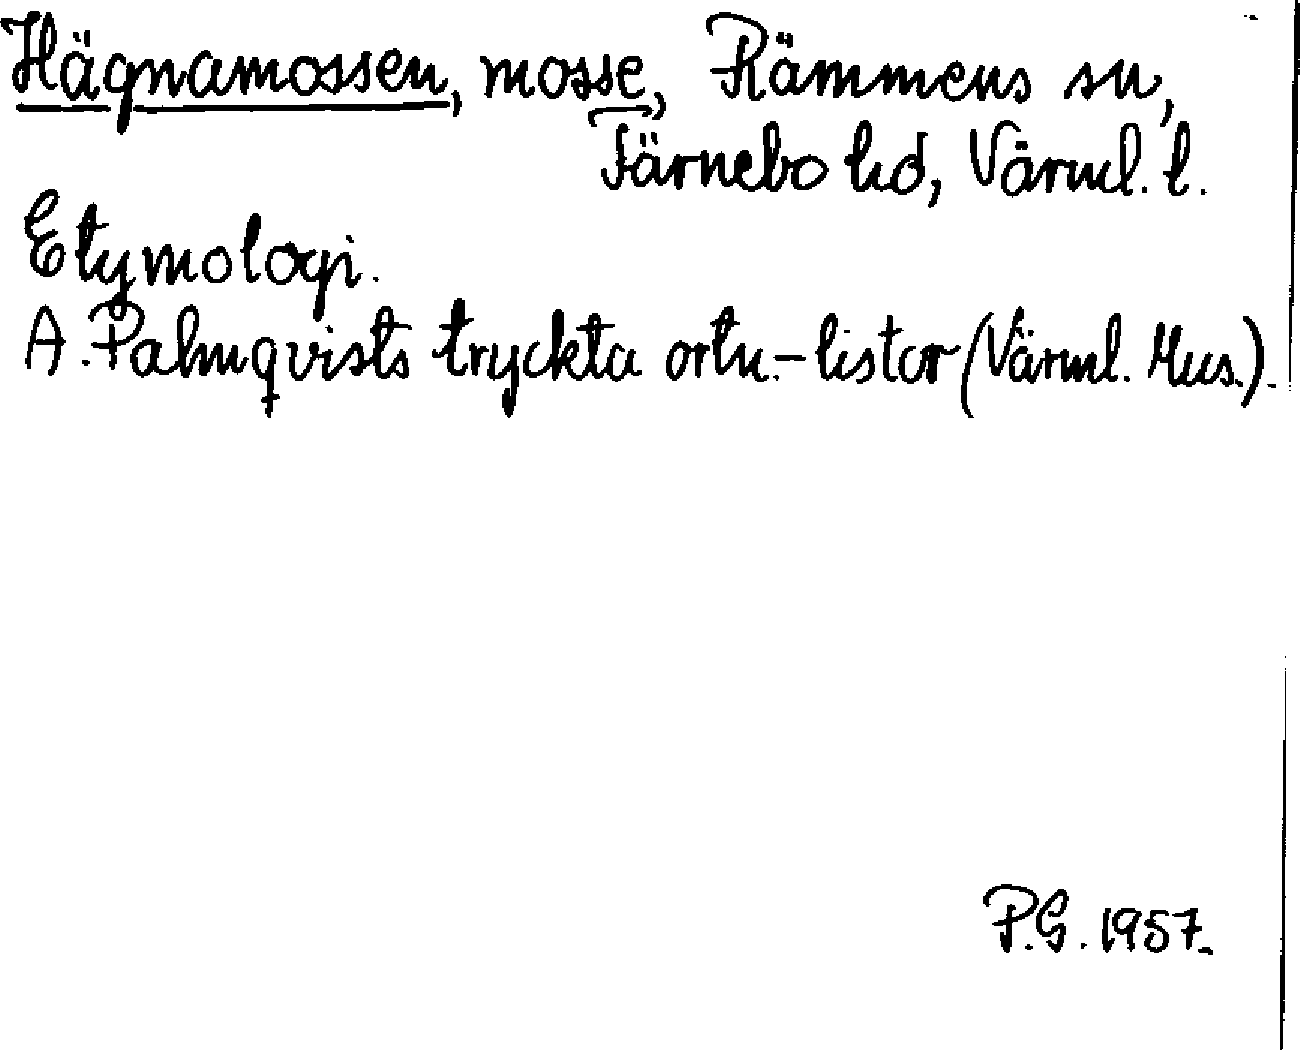 Hägnamossen, mosse, Rämmens sn,
Färnebo hd, Värml. l.
Etymologi.
A. Palmqvists tryckta ortn.-listor (Värml. Mus.).
P.G. 1957.